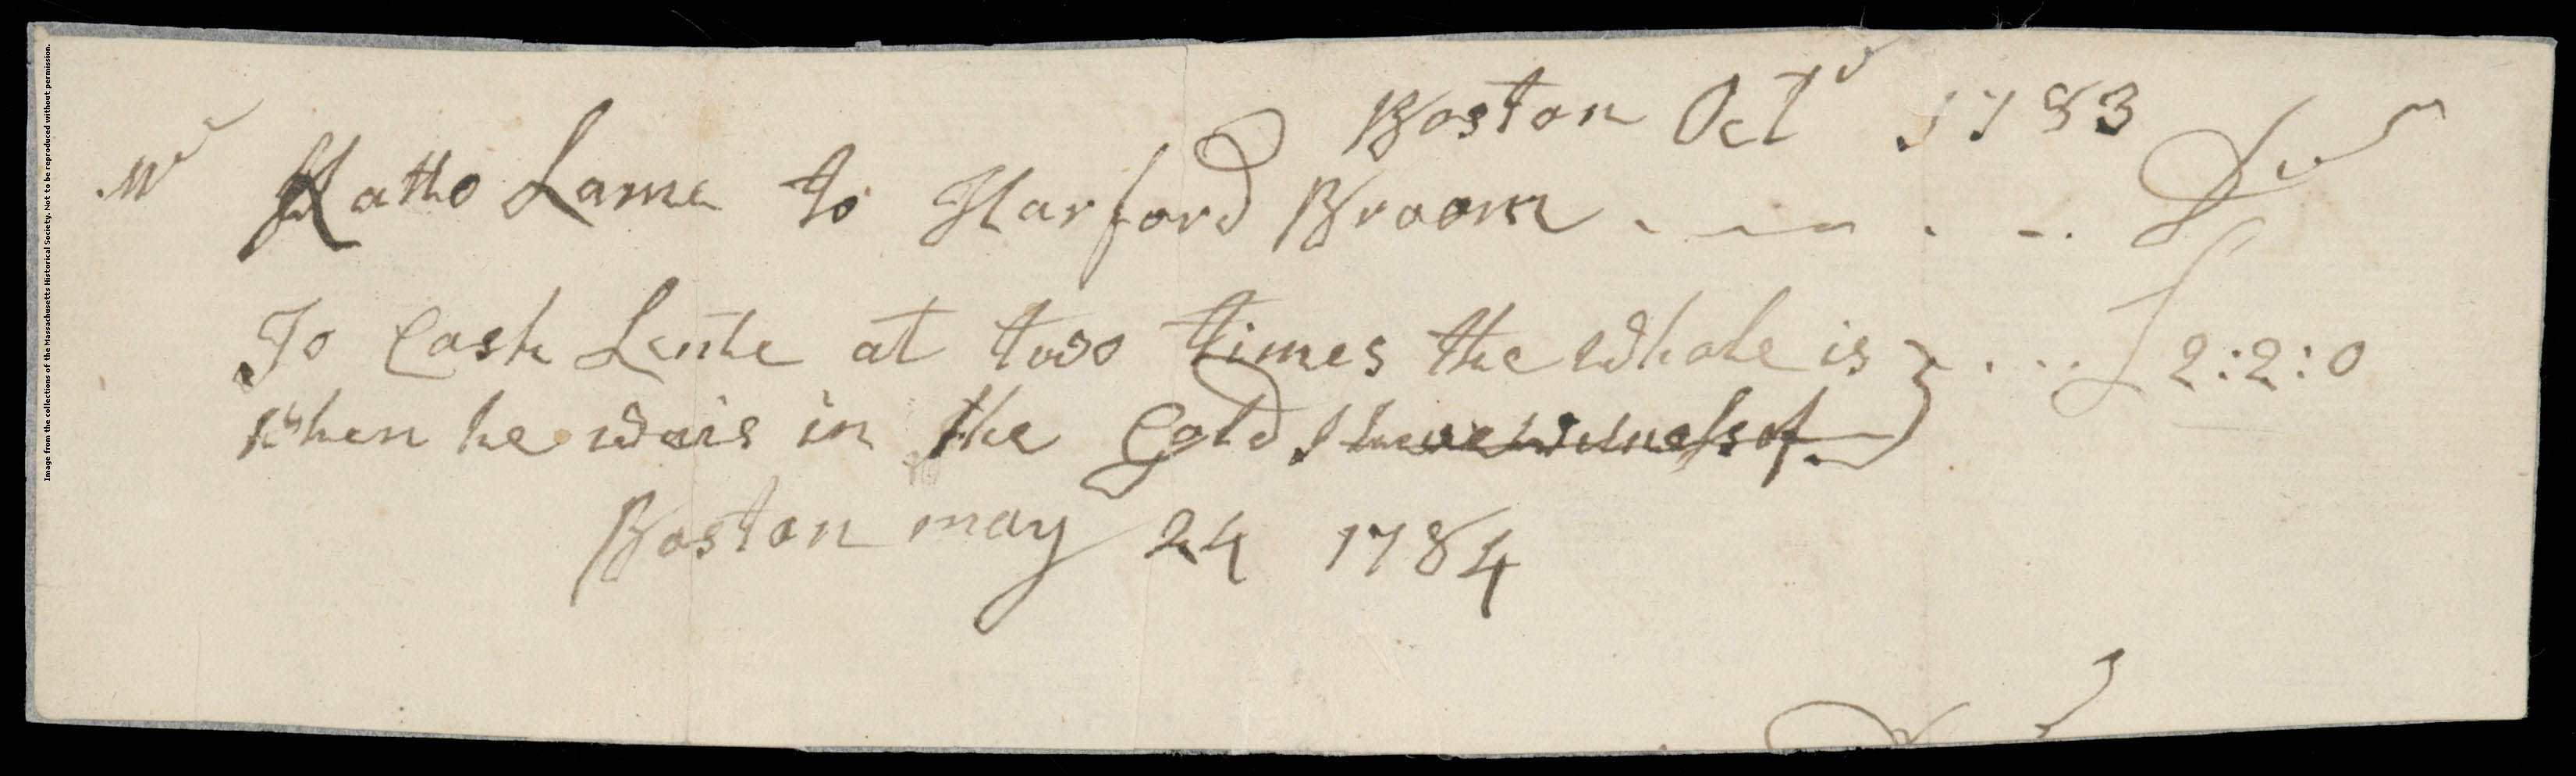 Boston Octr 1783
Mr Katto Lame to Harford Broom Dr
To Cash Lente at two times the whole is £2:2:0
when he wais in the Gold I have witness of
Boston may 24 1784
Image from the collections of the Massachusetts Historical Society. Not to be reproduced without permission.